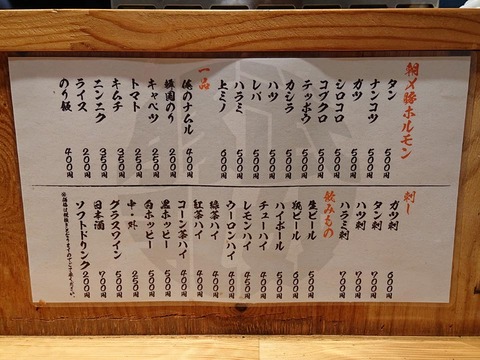 朝〆豚ホルモン
タン 500円
ナンコツ 500円
ガツ 500円
シロコロ 500円
コブクロ 500円
テッポウ 500円
カシラ 500円
ハツ 500円
レバ 500円
ハラミ 500円
上ミノ 600円
一品
俺のナムル 400円
韓国のり 200円
キャベツ 250円
トマト 250円
キムチ 350円
エンニク 350円
ライス 200円
のり飯 400円
刺し
ガツ刺 600円
タン刺 700円
ハツ刺 700円
ハラミ刺 700円
飲みもの
生ビール 500円
瓶ビール 600円
ハイボール 500円
チューハイ 400円
レモンハイ 450円
ウーロンハイ 400円
緑茶ハイ 400円
紅茶ハイ 400円
コーン茶ハイ 400円
黒ホッピー 500円
白ホッピー 500円
中・外 250円
グラスワイン 500円
日本酒 700円
ソフトドリンク 200円